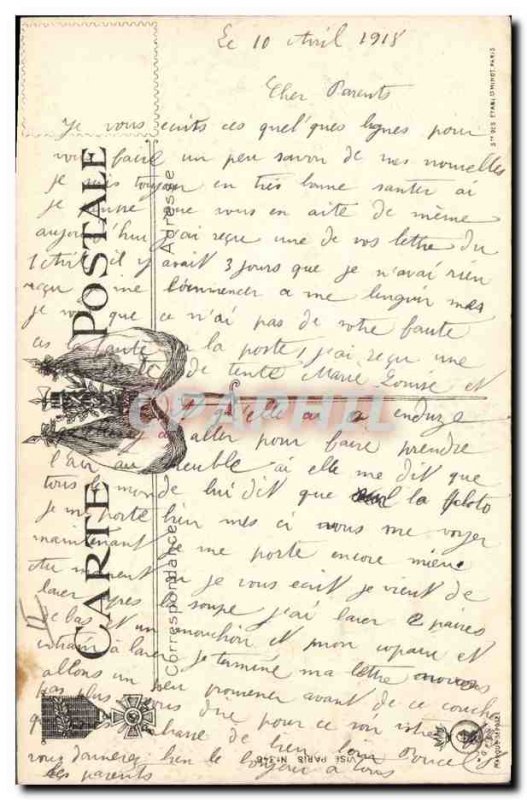 Le 10 Avril 1918
Cher Parents
Je vous écrits ces quel'ques lignes pour
vous faire un peu savoir de mes nouvelles
je suis toujour en très bonne santer ai
je pense que vous en aite de même
aujourd'hui j'ai reçu une de vos lettre du
1 Avril il y avait 3 jours que je n'avai rien
reçu me comencer a me languir mes
je que ce n'ai pas de votre faute
ces la faute a la poste, j'ai reçu une
de tente Marie Louise et
qu'elle a a enduze
aller pour faire prendre
l'air au meuble ai elle me dit que
tous le monde lui dit que la photo
je me porte bien mes ci vous me voyer
maintenant je me porte encore mieu
au moment ou je vous écrit je vient de
laver apres la soupe j'ai laver 2 paires
de bas et un mouchoir et mon copain et
entrain à laver je termine ma lettre nous
allons un peu promener avant de ce coucher
pas plus a vous dire pour ce soir votre
de bien loin
vous donnerez bien le bonjour a tous
les parents
CARTE POSTALE
Correspondance
Adresse
Sté DES ETABLts MINOT. PARIS
VISÉ PARIS N° 348
MARQUE DÉPOSÉE
CPAPHIL